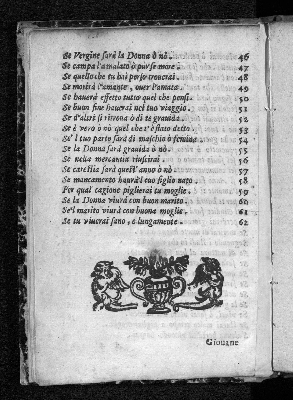 Se Vergine sarà la Donna ò nò. 46
Se campa l'amalato ò pur se more. 47
Se quello che tu hai perso trouerai. 48
Se morirà l'amante, ouer l'amata. 49
Se hauerà effetto tutto quel che pensi. 50
Se buon fine hauerai nel tuo viaggio. 51
Se d'altri si ritroua ò di te grauida. 52
Se è vero ò nò quel che t'è stato detto. 53
Se'l tuo parto sarà di maschio ò femina. 54
Se la Donna sarà grauida ò nò. 55
Se nella mercantia riuscirai. 56
Se carestia sarà quest'anno ò nò. 57
Se mancamento haurà'l tuo figlio nato. 58
Per qual cagione piglierai tu moglie. 59
Se la Donna viurà con buon marito. 60
Se'l marito viurà con buona moglie. 61
Se tu viuerai sano, e lungamente. 62
Giouine